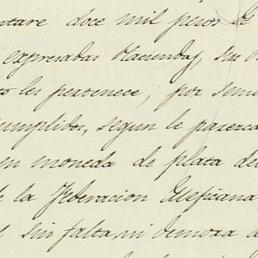 ntare doce mil pesos de
expresadas Haciendas, sus
les pertenece; por
umplidos, segun le parezca
en moneda de plata del
la Federacion Mejicana
sin falta, ni demora a